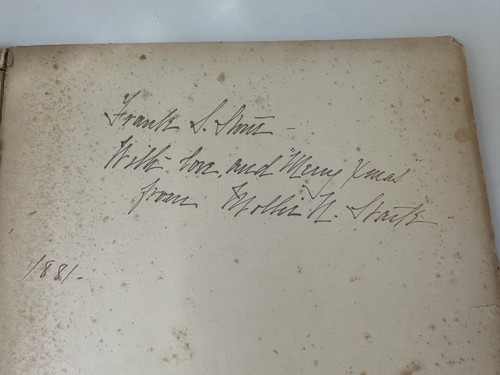 Frank S.
With love and "Merry Xmas
from Mollie N. Stark
1881-